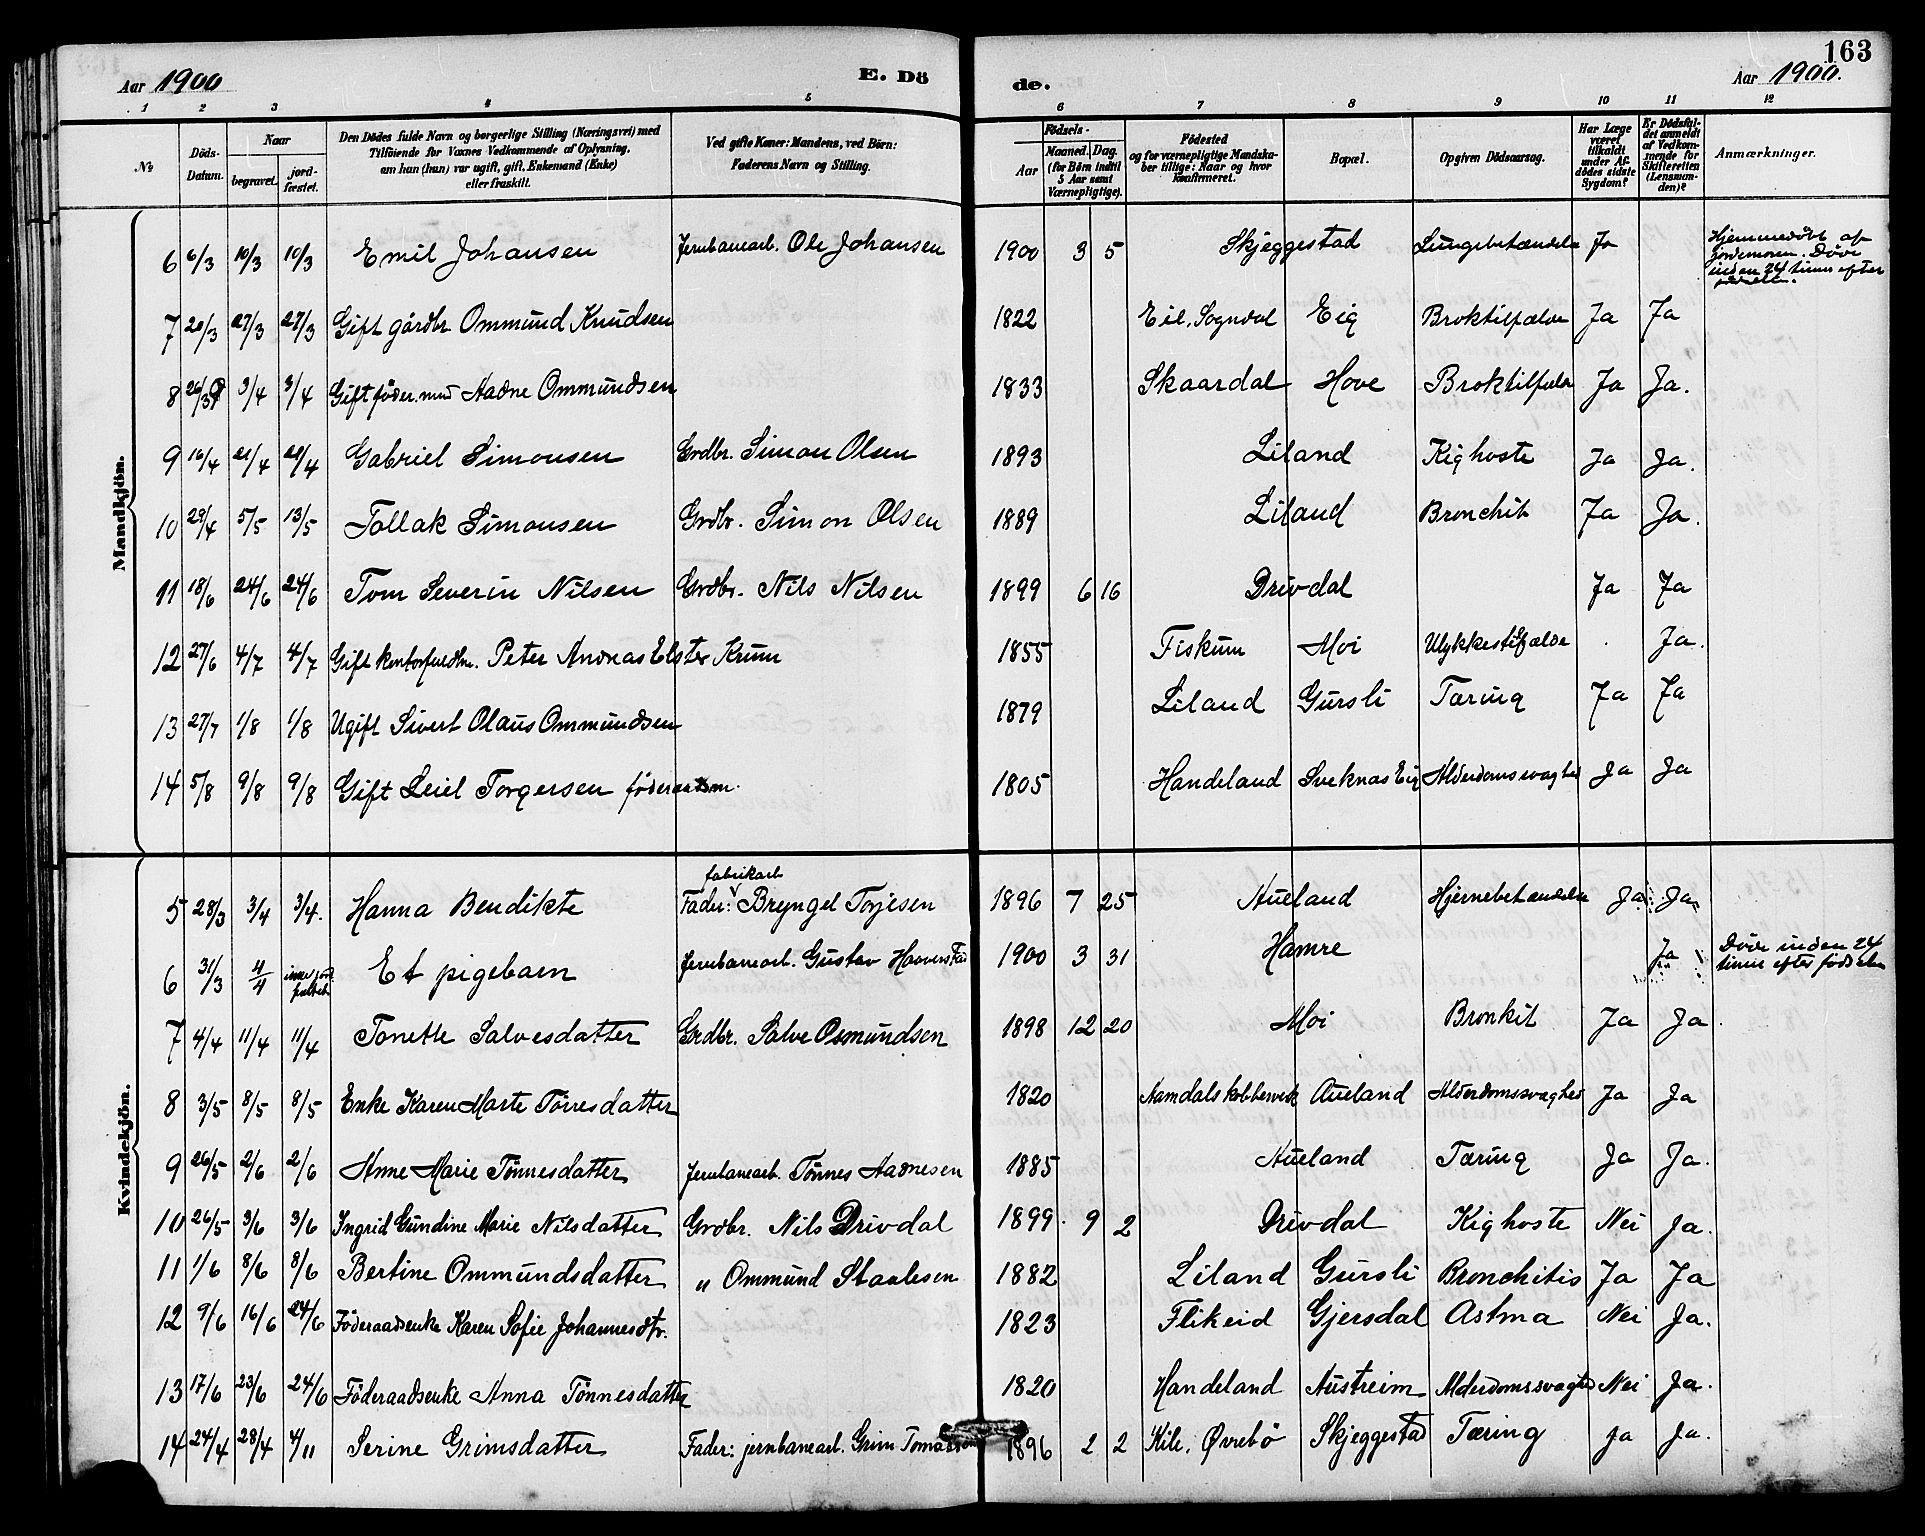 163
Aar 1900 E. Dö de. Aar 1900.
1 2 3 4 5 6 7 8 9 10 11 12
No
Döds-Datum.
Naar
begravet.
jord-fæstet.
Den Dödes fulde Navn og borgerlige Stilling (Næringsvei) med
Tilföiende for Voxnes Vedkommende af Oplysning,
om han (hun) var ugift, gift, Enkemand (Enke)
eller fraskilt.
Ved gifte Koner: Mandens, ved Börn:
Faderens Navn og Stilling.
Födsels-
Aar
Maaned. Dag.
(for Börn indtil
5 Aar samt
Værnepligtige).
Födested
og for værnepligtige Mandska-
ber tillige: Naar og hvor
konfirmeret.
Bopæl.
Opgiven Dödsaarsag.
Har Læge
været
tilkaldt
under Af-
dödes sidste
Sygdom?
Er Dödsfal-
det anmeldt
af Vedkom-
mende for
Skifteretten
(Lensman-
den)?
Anmærkninger.
Mandkjön.
6 6/3 10/3 10/3 Emil Johansen Jernbanearb. Ole Johansen 1900 3 5 Skjeggestad Lungebetændelse Ja Hjemmedöbt af jordemoren. Döde inden 24 timer efter
7 20/3 27/3 27/3 Gift gårdbr Ommund Knudsen 1822 Eie, Sogndal Eig Broktilfælde Ja Ja
8 26/3 3/4 3/4 Gift föder.md Aadne Ommundsen 1833 Skaardal Hove Broktilfælde Ja Ja.
9 16/4 21/4 21/4 Gabriel Simonsen Grdbr. Simon Olsen 1893 Liland Kighoste Ja Ja.
10 29/4 5/5 13/5 Tollak Simonsen Grdbr. Simon Olsen 1889 Liland Bronchit Ja Ja.
11 18/6 24/6 24/6 Tom Severin Nilsen Grdbr. Nils Nilsen 1899 6 16 Drivdal Ja Ja
12 27/6 4/7 4/7 Gift kontorfuldm. Peter Andreas Elster Krum 1855 Fiskum Moi Ulykkestilfælde Ja.
13 27/7 1/8 1/8 Ugift Sivert Olaus Ommundsen 1879 Liland Gursli Tæring Ja Ja
14 5/8 9/8 9/8 Gift Leiel Torgersen föderaadsm. 1805 Handeland Sveknas Eig Alderdomssvaghed Ja Ja
Kvindekjön.
fabrikarb
5 28/3 3/4 3/4. Hanna Bendikte Fader: Bryngel Torjesen 1896 7 25 Aueland Hjernebetændelse Ja Ja
6 31/3 4/4 Et pigebarn Jernbanearb. Gustav Haaverstad 1900 3 31 Hamre Ja Döde inden 24 timer efter födselen
7 4/4 11/4 11/4 Tonette Salvesdatter Grdbr. Salve Osmundsen 1898 12 20 Moi Bronkit Ja Ja.
8 3/5 8/5 8/5 Enke Karen Marte Torresdatter 1820 Aamdals kobberverk Aueland Alderdomssvaghed Ja Ja
9 26/5 2/6 2/6 Anne Marie Tönnesdatter Jernbanearb. Tönnes Aadnesen 1885 Aueland Tæring Ja Ja.
10 26/5 3/6 3/6 Ingrid Gundine Marie Nilsdatter Grdbr. Nils Drivdal 1899. 9 2 Drivdal Kighoste Nei Ja.
11 1/6 8/6 8/6 Bertine Ommundsdatter " Ommund Staalesen 1882 Liland Gursli Bronchitis Ja Ja
12 9/6 16/6 24/6 Föderaadsenke Karen Sofie Johannesdtr. 1823 Flikeid Gjersdal Astma Nei Ja.
13 17/6 23/6 24/6 Föderaadsenke Anna Tönnesdatter 1820 Handeland Austreim Alderdomssvaghed Nei Ja.
14 24/4 28/4 4/11 Serine Grimsdatter Fader: jernbanearb. Grim Tomassen 1896 2 2 Kile, Övrebö Skjeggestad Tæring Ja Ja.